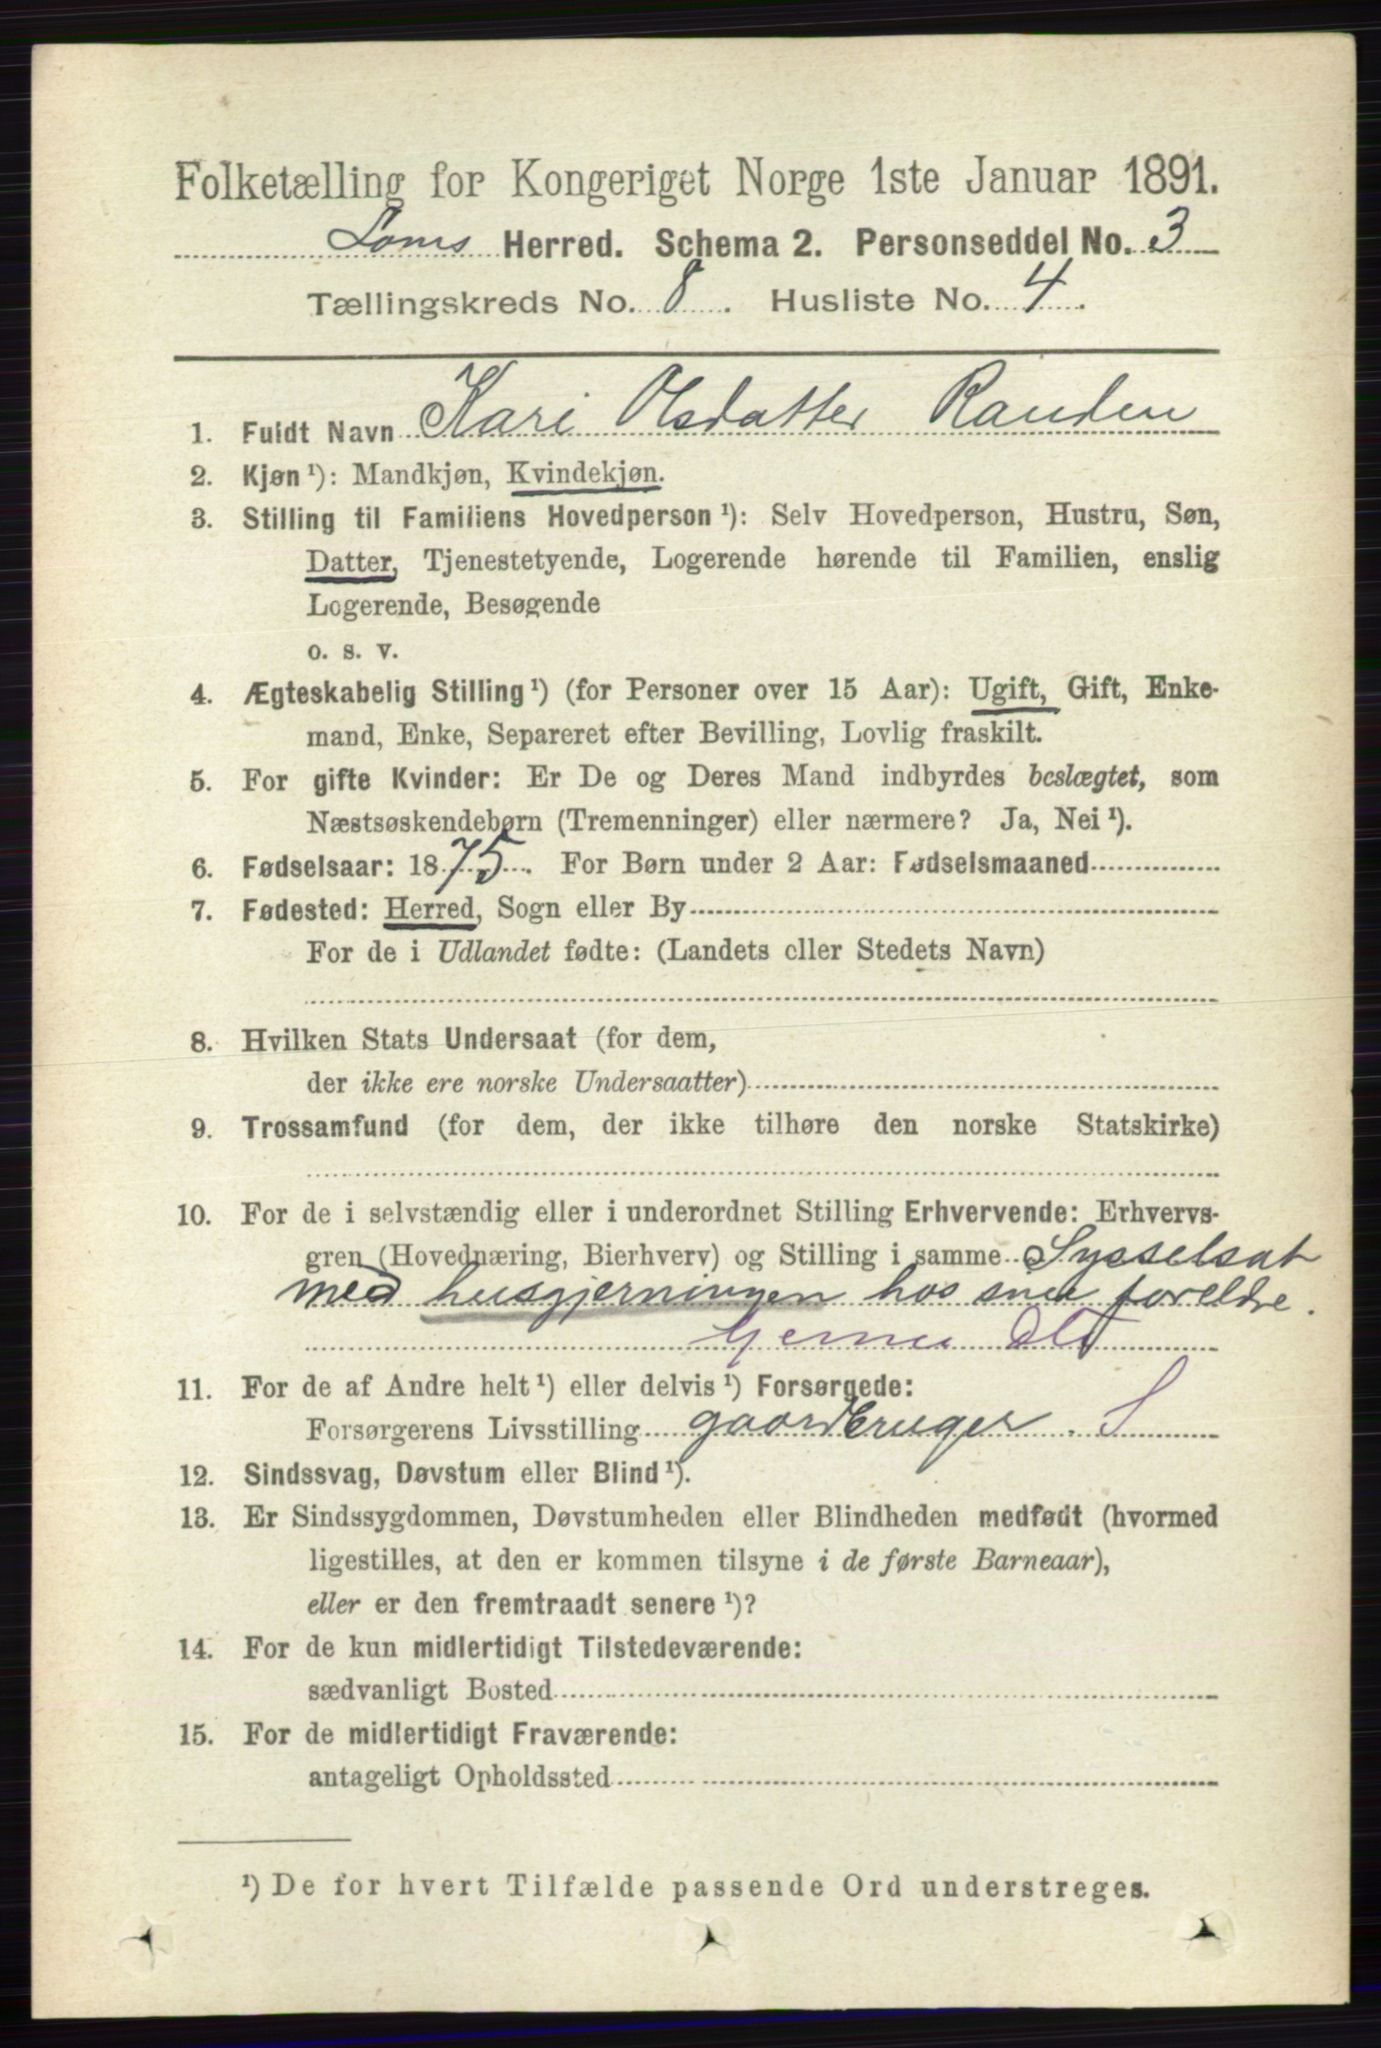 Folketælling for Kongeriget Norge 1ste Januar 1891.
Loms Herred. Schema 2. Personseddel No. 3
Tællingskreds No. 8. Husliste No. 4.
1. Fuldt Navn Kari Olsdatter Randen
2. Kjøn ¹): Mandkjøn, Kvindekjøn.
3. Stilling til Familiens Hovedperson ¹): Selv Hovedperson, Hustru, Søn,
Datter, Tjenestetyende, Logerende hørende til Familien, enslig
Logerende, Besøgende
o. s. v.
4. Ægteskabelig Stilling ¹) (for Personer over 15 Aar): Ugift, Gift, Enke-
mand, Enke, Separeret efter Bevilling, Lovlig fraskilt.
5. For gifte Kvinder: Er De og Deres Mand indbyrdes beslægtet, som
Næstsøskendebørn (Tremenninger) eller nærmere? Ja, Nei ¹).
6. Fødselsaar: 1875. For Børn under 2 Aar: Fødselsmaaned
7. Fødested: Herred, Sogn eller By
For de i Udlandet fødte: (Landets eller Stedets Navn)
8. Hvilken Stats Undersaat (for dem,
der ikke ere norske Undersaatter)
9. Trossamfund (for dem, der ikke tilhøre den norske Statskirke)
10. For de i selvstændig eller i underordnet Stilling Erhvervende: Erhvervs-
gren (Hovednæring, Bierhverv) og Stilling i samme Sysselsat
med husgjerningen hos sine foreldre.
11. For de af Andre helt ¹) eller delvis ¹) Forsørgede:
Forsørgerens Livsstilling gaardbruger. S
12. Sindssvag, Døvstum eller Blind ¹).
13. Er Sindssygdommen, Døvstumheden eller Blindheden medfødt (hvormed
ligestilles, at den er kommen tilsyne i de første Barneaar),
eller er den fremtraadt senere ¹)?
14. For de kun midlertidigt Tilstedeværende:
sædvanligt Bosted
15. For de midlertidigt Fraværende:
antageligt Opholdssted
¹) De for hvert Tilfælde passende Ord understreges.